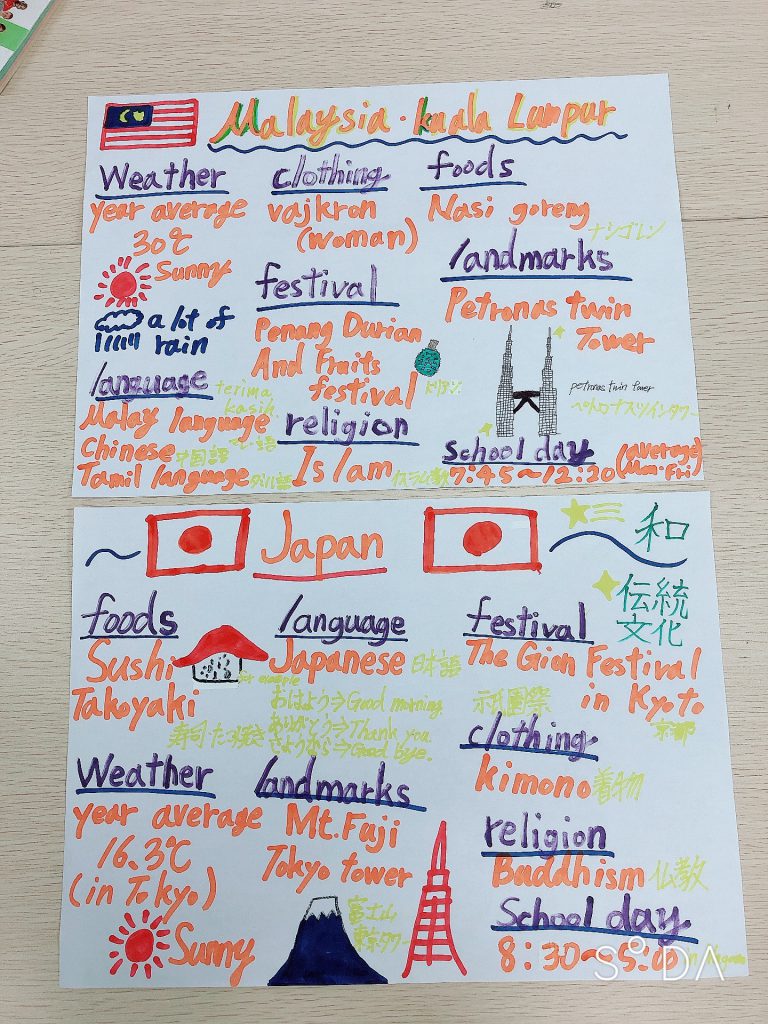 Malaysia・kuala Lumpur
Weather
year average
30℃
Sunny
a lot of
rain
clothing
vajkron
(woman)
foods
Nasi goreng
ナシゴレン
festival
Penang Durian
And Fruits
festival
ドリアン
landmarks
Petronas twin
Tower
petronas twin tower
ペトロナスツインタワー
language
terima
kasih
Malay language
マレー語
Chinese 中国語
Tamil language タミル語
religion
Islam イスラム教
School day
7:45~12:20 (average)
Mon.Fri
Japan
和
伝統
文化
foods
Sushi
Takoyaki
寿司・たこ焼き
language
Japanese 日本語
for example
おはよう⇒Good morning.
ありがとう⇒Thank you.
さようなら⇒Good bye.
festival
The Gion Festival
in Kyoto
祇園祭
京都
clothing
kimono 着物
Weather
year average
16.3℃
(in Tokyo)
Sunny
landmarks
Mt.Fuji
Tokyo tower
富士山
東京タワー
religion
Buddhism 仏教
School day
8:30~5:00
SODA